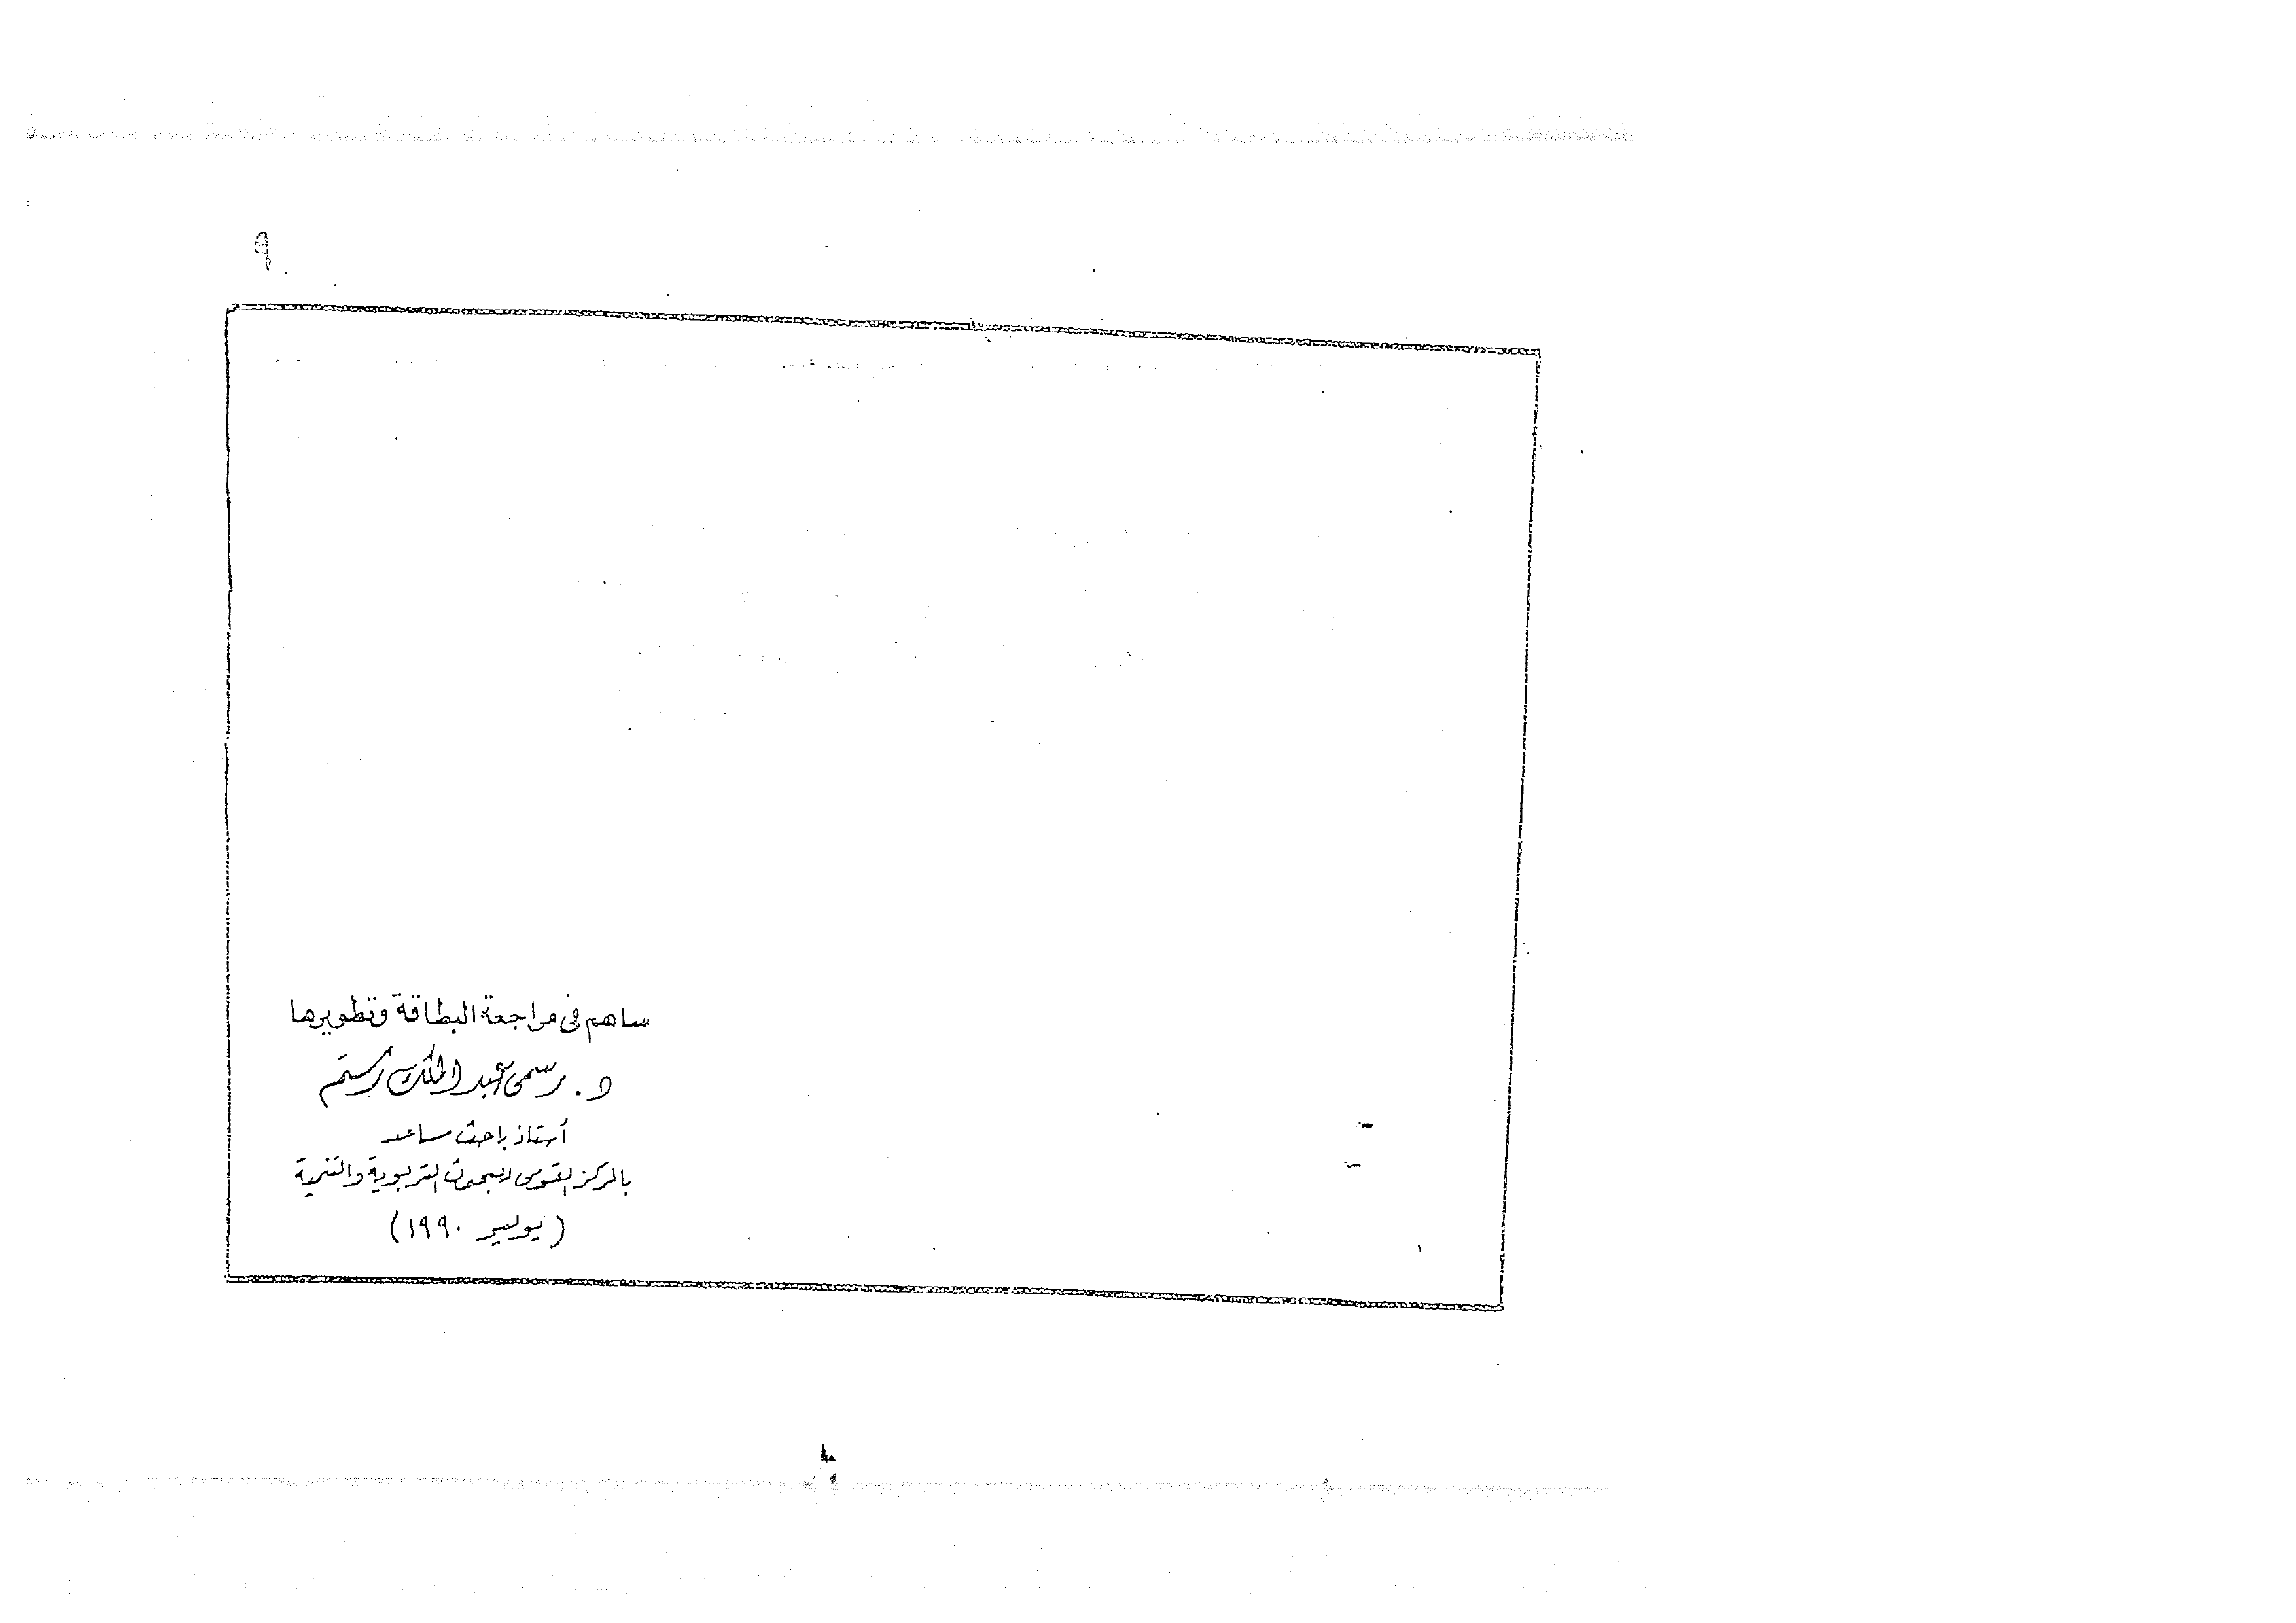 ٩
ساهم فى مراجعة البطاقة وتطويرها
د. رسمى عبد الملك رستم
أستاذ باحث مساعد
بالمركز القومى للبحوث التربوية والتنمية
(يوليو ١٩٩٠)